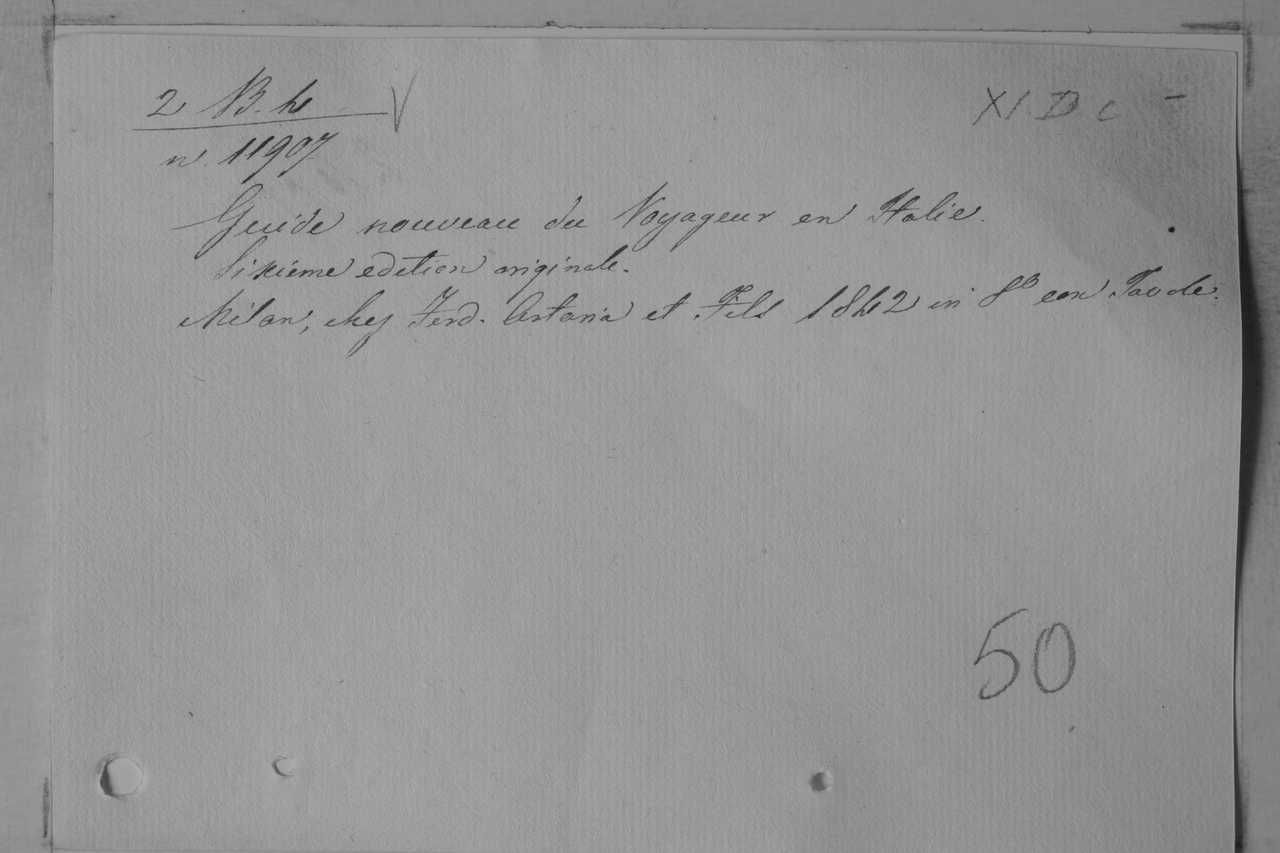 2 B. h V
XI D c -
n. 11907
Guide nouveau du Voyageur en Italie.
Sixième edition originale.
Milan, chez Ferd. Artaria et Fils 1842 in 8º con Tavole.
50